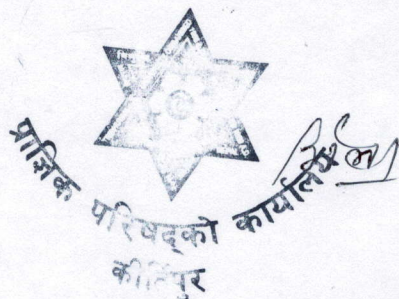 प्राज्ञिक परिषद्को कार्यालय
कीर्तिपुर